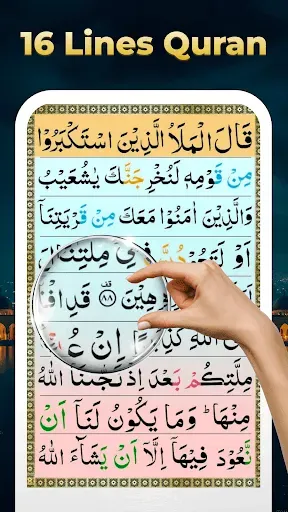 16 Lines Quran
قَالَ الْمَلَاُ الَّذِيْنَ اسْتَكْبَرُوْا
مِنْ قَوْمِهٖ لَنُخْرِجَنَّكَ يٰشُعَيْبُ
وَالَّذِيْنَ اٰمَنُوْا مَعَكَ مِنْ قَرْيَتِنَاۤ
اَوْ لَتَعُوْدُنَّ فِيْ مِلَّتِنَا
۸۸ قَدِ
اللّٰهِ كَذِبًا اِنْ
مِلَّتِكُمْ بَعْدَ اِذْ نَجّٰىنَا اللّٰهُ
مِنْهَا ؕ وَمَا يَكُوْنُ لَنَاۤ اَنْ
نَّعُوْدَ فِيْهَاۤ اِلَّاۤ اَنْ يَّشَآءَ اللّٰهُ